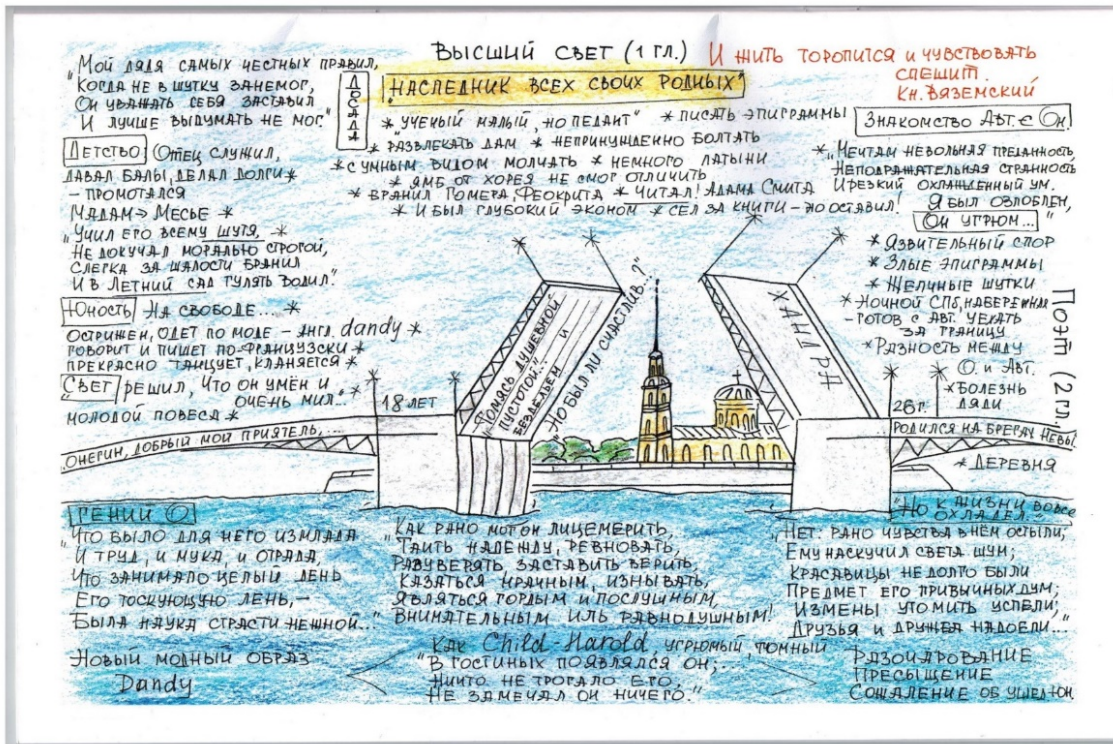 ВЫСШИЙ СВЕТ (1 ГЛ.)
И ЖИТЬ ТОРОПИТСЯ И ЧУВСТВОВАТЬ
СПЕШИТ.
КН. ВЯЗЕМСКИЙ
"МОЙ ДЯДЯ САМЫХ ЧЕСТНЫХ ПРАВИЛ,
КОГДА НЕ В ШУТКУ ЗАНЕМОГ,
ОН УВАЖАТЬ СЕБЯ ЗАСТАВИЛ
И ЛУЧШЕ ВЫДУМАТЬ НЕ МОГ."
ДОСАДА
"НАСЛЕДНИК ВСЕХ СВОИХ РОДНЫХ"
* "УЧЕНЫЙ МАЛЫЙ, НО ПЕДАНТ" * ПИСАТЬ ЭПИГРАММЫ
* РАЗВЛЕКАТЬ ДАМ * НЕПРИНУЖДЕННО БОЛТАТЬ
* С УМНЫМ ВИДОМ МОЛЧАТЬ * НЕМНОГО ЛАТЫНИ
* ЯМБ ОТ ХОРЕЯ НЕ СМОГ ОТЛИЧИТЬ
* БРАНИЛ ГОМЕРА, ФЕОКРИТА * ЧИТАЛ! АДАМА СМИТА
* И БЫЛ ГЛУБОКИЙ ЭКОНОМ * СЕЛ ЗА КНИГИ – НО ОСТАВИЛ!
ДЕТСТВО ОТЕЦ СЛУЖИЛ,
ДАВАЛ БАЛЫ, ДЕЛАЛ ДОЛГИ *
– ПРОМОТАЛСЯ
МАДАМ → МЕСЬЕ *
"УЧИЛ ЕГО ВСЕМУ ШУТЯ, *
НЕ ДОКУЧАЛ МОРАЛЬЮ СТРОГОЙ,
СЛЕГКА ЗА ШАЛОСТИ БРАНИЛ
И В ЛЕТНИЙ САД ГУЛЯТЬ ВОДИЛ."
ЮНОСТЬ НА СВОБОДЕ... *
ОСТРИЖЕН, ОДЕТ ПО МОДЕ – АНГЛ. dandy *
ГОВОРИТ И ПИШЕТ ПО-ФРАНЦУЗСКИ *
ПРЕКРАСНО ТАНЦУЕТ, КЛАНЯЕТСЯ *
"СВЕТ РЕШИЛ, ЧТО ОН УМЁН И
ОЧЕНЬ МИЛ..." *
МОЛОДОЙ ПОВЕСА *
ЗНАКОМСТВО АВТ. С ОН.
* "МЕЧТАМ НЕВОЛЬНАЯ ПРЕДАННОСТЬ
НЕПОДРАЖАТЕЛЬНАЯ СТРАННОСТЬ
И РЕЗКИЙ ОХЛАЖДЕННЫЙ УМ.
Я БЫЛ ОЗЛОБЛЕН,
ОН УГРЮМ..."
* ЯЗВИТЕЛЬНЫЙ СПОР
* ЗЛЫЕ ЭПИГРАММЫ
* ЖЕЛЧНЫЕ ШУТКИ
* НОЧНОЙ СПБ, НАБЕРЕЖНАЯ
– ГОТОВ С АВТ. УЕХАТЬ
ЗА ГРАНИЦУ
* РАЗНОСТЬ МЕЖДУ
О. И АВТ.
* БОЛЕЗНЬ
ДЯДИ
ПОЭТ (2 ГЛ.
18 ЛЕТ
"ТОМЯСЬ ДУШЕВНОЙ
ПУСТОТОЙ.."
И
БЕЗДЕЛЬЕМ
"НО БЫЛ ЛИ СЧАСТЛИВ..?"
ХАНДРА
26 Г.
ОНЕГИН, ДОБРЫЙ МОЙ ПРИЯТЕЛЬ,...
РОДИЛСЯ НА БРЕГАХ НЕВЫ.
* ДЕРЕВНЯ
ГЕНИЙ О.
"ЧТО БЫЛО ДЛЯ НЕГО ИЗМЛАДА
И ТРУД, И МУКА, И ОТРАДА,
ЧТО ЗАНИМАЛО ЦЕЛЫЙ ДЕНЬ
ЕГО ТОСКУЮЩУЮ ЛЕНЬ, –
БЫЛА НАУКА СТРАСТИ НЕЖНОЙ..."
НОВЫЙ МОДНЫЙ ОБРАЗ
Dandy
"КАК РАНО МОГ ОН ЛИЦЕМЕРИТЬ,
ТАИТЬ НАДЕЖДУ, РЕВНОВАТЬ,
РАЗУВЕРЯТЬ, ЗАСТАВИТЬ ВЕРИТЬ,
КАЗАТЬСЯ МРАЧНЫМ, ИЗНЫВАТЬ,
ЯВЛЯТЬСЯ ГОРДЫМ И ПОСЛУШНЫМ,
ВНИМАТЕЛЬНЫМ ИЛЬ РАВНОДУШНЫМ!
КАК Child-Harold, УГРЮМЫЙ, ТОМНЫЙ
"В ГОСТИНЫХ ПОЯВЛЯЛСЯ ОН;...
НИЧТО НЕ ТРОГАЛО ЕГО,
НЕ ЗАМЕЧАЛ ОН НИЧЕГО."
"НО К ЖИЗНИ ВОВСЕ
ОХЛАДЕЛ"
"НЕТ: РАНО ЧУВСТВА В НЕМ ОСТЫЛИ;
ЕМУ НАСКУЧИЛ СВЕТА ШУМ;
КРАСАВИЦЫ НЕ ДОЛГО БЫЛИ
ПРЕДМЕТ ЕГО ПРИВЫЧНЫХ ДУМ;
ИЗМЕНЫ УТОМИТЬ УСПЕЛИ;
ДРУЗЬЯ И ДРУЖБА НАДОЕЛИ..."
РАЗОЧАРОВАНИЕ
ПРЕСЫЩЕНИЕ
СОЖАЛЕНИЕ ОБ УШЕД. ЮН.